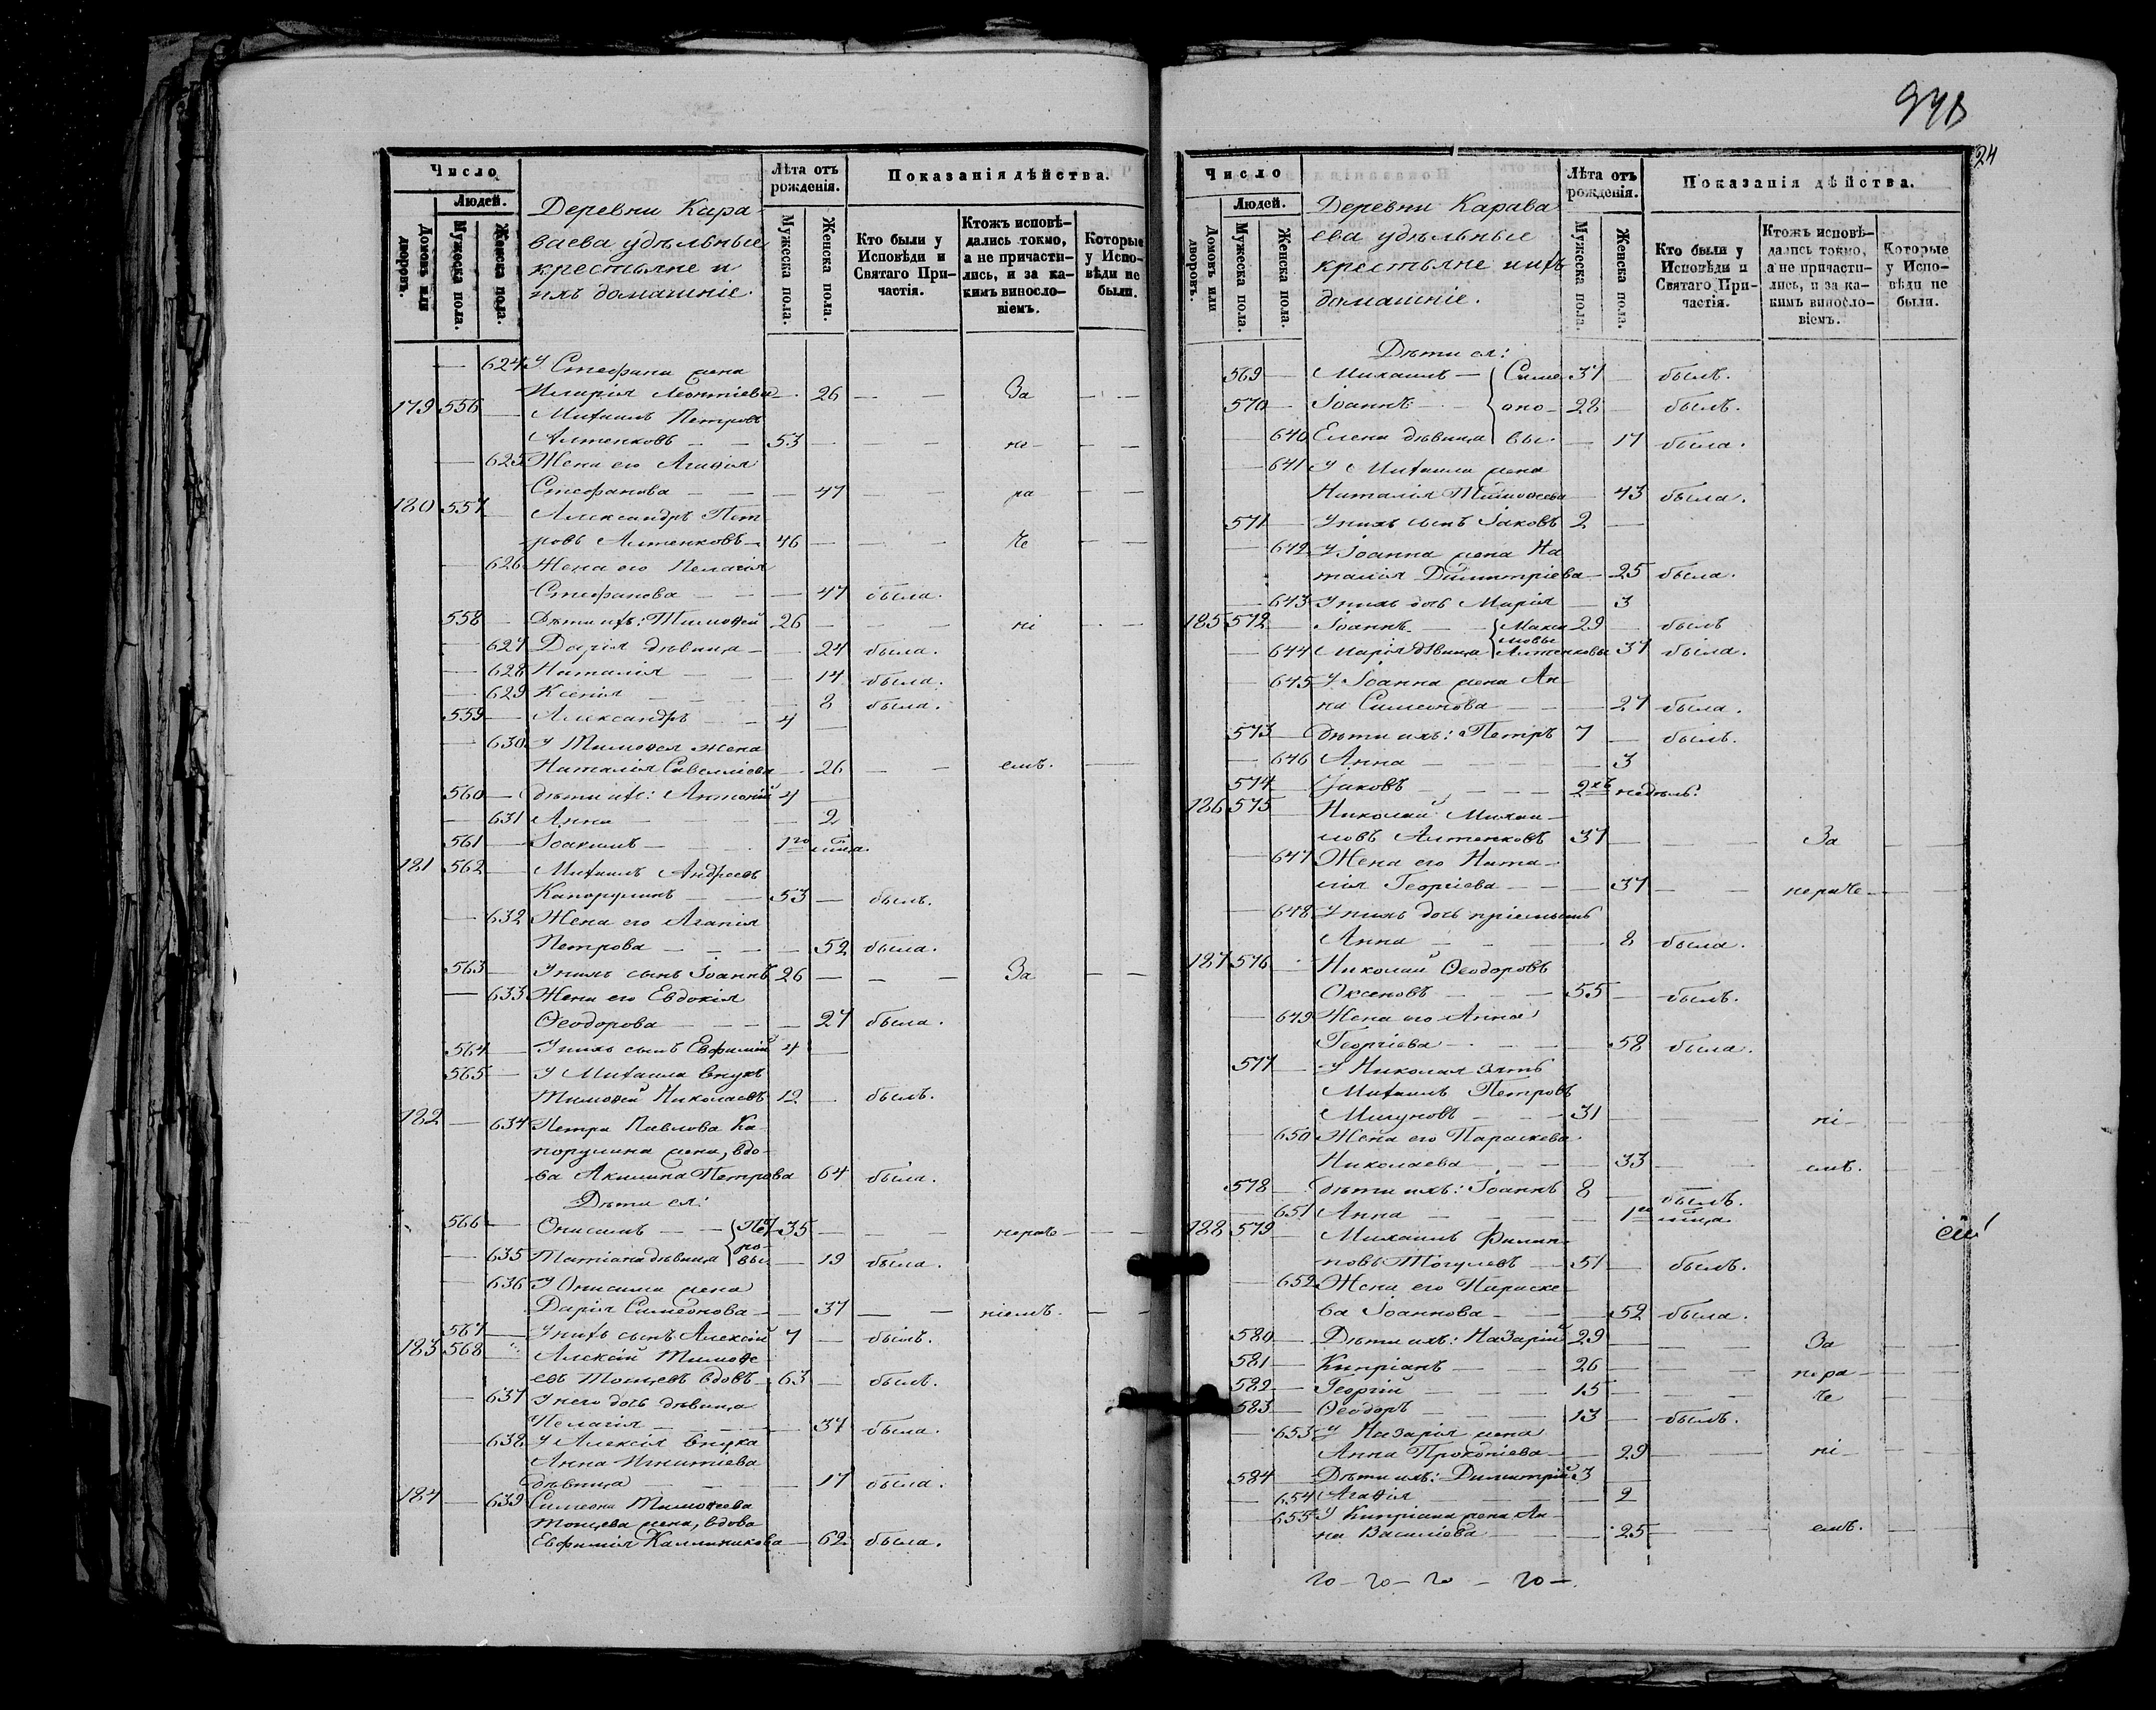 Число
Людей.
Домовъ или дворовъ.
Мужеска пола.
Женска пола.
Деревни Кара-
ваева удѣльные
крестьяне и
ихъ домашніе.
Лѣта отъ рожденія.
Мужеска пола.
Женска пола.
Показанія дѣйства.
Кто были у Исповѣди и Святаго Причастія.
Ктожъ исповѣдались токмо, а не причастились, и за какимъ винословіемъ.
Которые у Исповѣди не были.
— 624 У Стефана жена
Иларія Леонтіева — 26 — — За — —
179 556 — Михаилъ Петровъ
Алтенковъ — — 53 — — — не — — —
— 625 Жена его Агафія
Стефанова — — — 47 — — ра — —
180 557 — Александръ Пет-
ровъ Алтенковъ — 46 — — — че — —
— 626 Жена его Пелагія
Стефанова — — — 47 была.
558 — Дѣти ихъ: Тимофей 26 — — — ні — —
— 627 Дарія дѣвица — — 24 была.
— 628 Наталія — — 14 была.
— 629 Ксенія — — 8 была.
559 — Александръ — — 4 —
— 630 У Тимофея жена
Наталія Савеліева — 26 — — емъ. —
560 — Дѣти ихъ: Антоній 4 —
— 631 Анна — — — 2
561 — Іоакимъ — 1го м-ца.
181 562 — Михаилъ Андреевъ
Капорулинъ — 53 — былъ.
— 632 Жена его Агапія
Петрова — — — 52 была.
563 — У нихъ сынъ Іоаннъ 26 — — — За — —
— 633 Жена его Евдокія
Ѳеодорова — — — 27 была.
564 — У нихъ сынъ Евфимій 4 —
565 — У Михаила внукъ
Тимофей Николаевъ 12 — былъ.
182 — 634 Петра Павлова Ка-
порулина жена, вдо-
ва Акилина Петрова 64 была.
Дѣти ея:
566 — Онисимъ — — {Пет- 35 — — — нераче — — —
— 635 Татіана дѣвица {ро-вы — 19 была.
— 636 У Онисима жена
Дарія Симеонова — — 37 — — ніемъ. — —
567 — У нихъ сынъ Алексій 7 — былъ.
183 568 — Алексій Тимофе-
евъ вдовъ — 63 — былъ.
— 637 У него дочь дѣвица
Пелагія — — — 37 была.
— 638 У Алексія внука
Анна Игнатіева
дѣвица — — — 17 была.
184 — 639 Симеона Тимофеева
жена, вдова
Евфимія Каллиникова — 62 была.
24
Число
Людей.
Домовъ или дворовъ.
Мужеска пола.
Женска пола.
Деревни Карава-
ева удѣльные
крестьяне и ихъ
домашніе.
Лѣта отъ рожденія.
Мужеска пола.
Женска пола.
Показанія дѣйства.
Кто были у Исповѣди и Святаго Причастія.
Ктожъ исповѣдались токмо, а не причастились, и за какимъ винословіемъ.
Которые у Исповѣди не были.
Дѣти ея:
569 — Михаилъ — {Симе- 37 — былъ.
570 — Іоаннъ — — {оно- 28 — былъ.
— 640 Елена дѣвица {вы. — 17 была.
— 641 У Михаила жена
Наталія Тимофеева — 43 была.
571 — У нихъ сынъ Іаковъ 2 —
— 642 У Іоанна жена На-
талія Димитріева — 25 была.
— 643 У нихъ дочь Марія — 3
185 572 — Іоаннъ — {Макси- 29 — былъ
мовы
— 644 Марія дѣвица {Алтенковы 37 была.
— 645 У Іоанна жена Ан-
на Симеонова — — 27 была.
573 — Дѣти ихъ: Петръ 7 — былъ.
— 646 Анна — — — 3
574 — Іаковъ — — — 2хъ недѣль.
186 575 — Николай Михаи-
ловъ Алтенковъ 37 — — — За —
— 647 Жена его Ната-
лія Георгіева — — — 37 — — нераче — —
— 648 У нихъ дочь пріемышъ
Анна — — — 8 была.
187 576 — Николай Ѳеодоровъ
Оксеновъ — — 55 — былъ.
— 649 Жена его Анна
Георгіева — — — 58 была.
577 — У Николая зять
Михаилъ Петровъ
Мигуновъ — — 31 — — — ні — —
— 650 Жена его Параскева
Николаева — — — 33 — — емъ. — —
578 — Дѣти ихъ: Іоаннъ 8 — былъ.
— 651 Анна — — — 1го м-ца.
188 579 — Михаилъ Филип-
повъ — 51 — былъ.
— 652 Жена его Параске-
ва Іоаннова — — 52 была.
580 — Дѣти ихъ: Назарій 29 — — — За —
581 — Кипріанъ — — 26 — — — нера — —
582 — Георгій — — 15 — — — че —
583 — Ѳеодоръ — — 13 — былъ.
— 653 У Назарія жена
Анна Прокопіева — 29 — — ні — —
584 — Дѣти ихъ: Димитрій 3 —
— 654 Агафія — — — 2
— 655 У Кипріана жена Ан-
на Василіева — — 25 — — емъ. — —